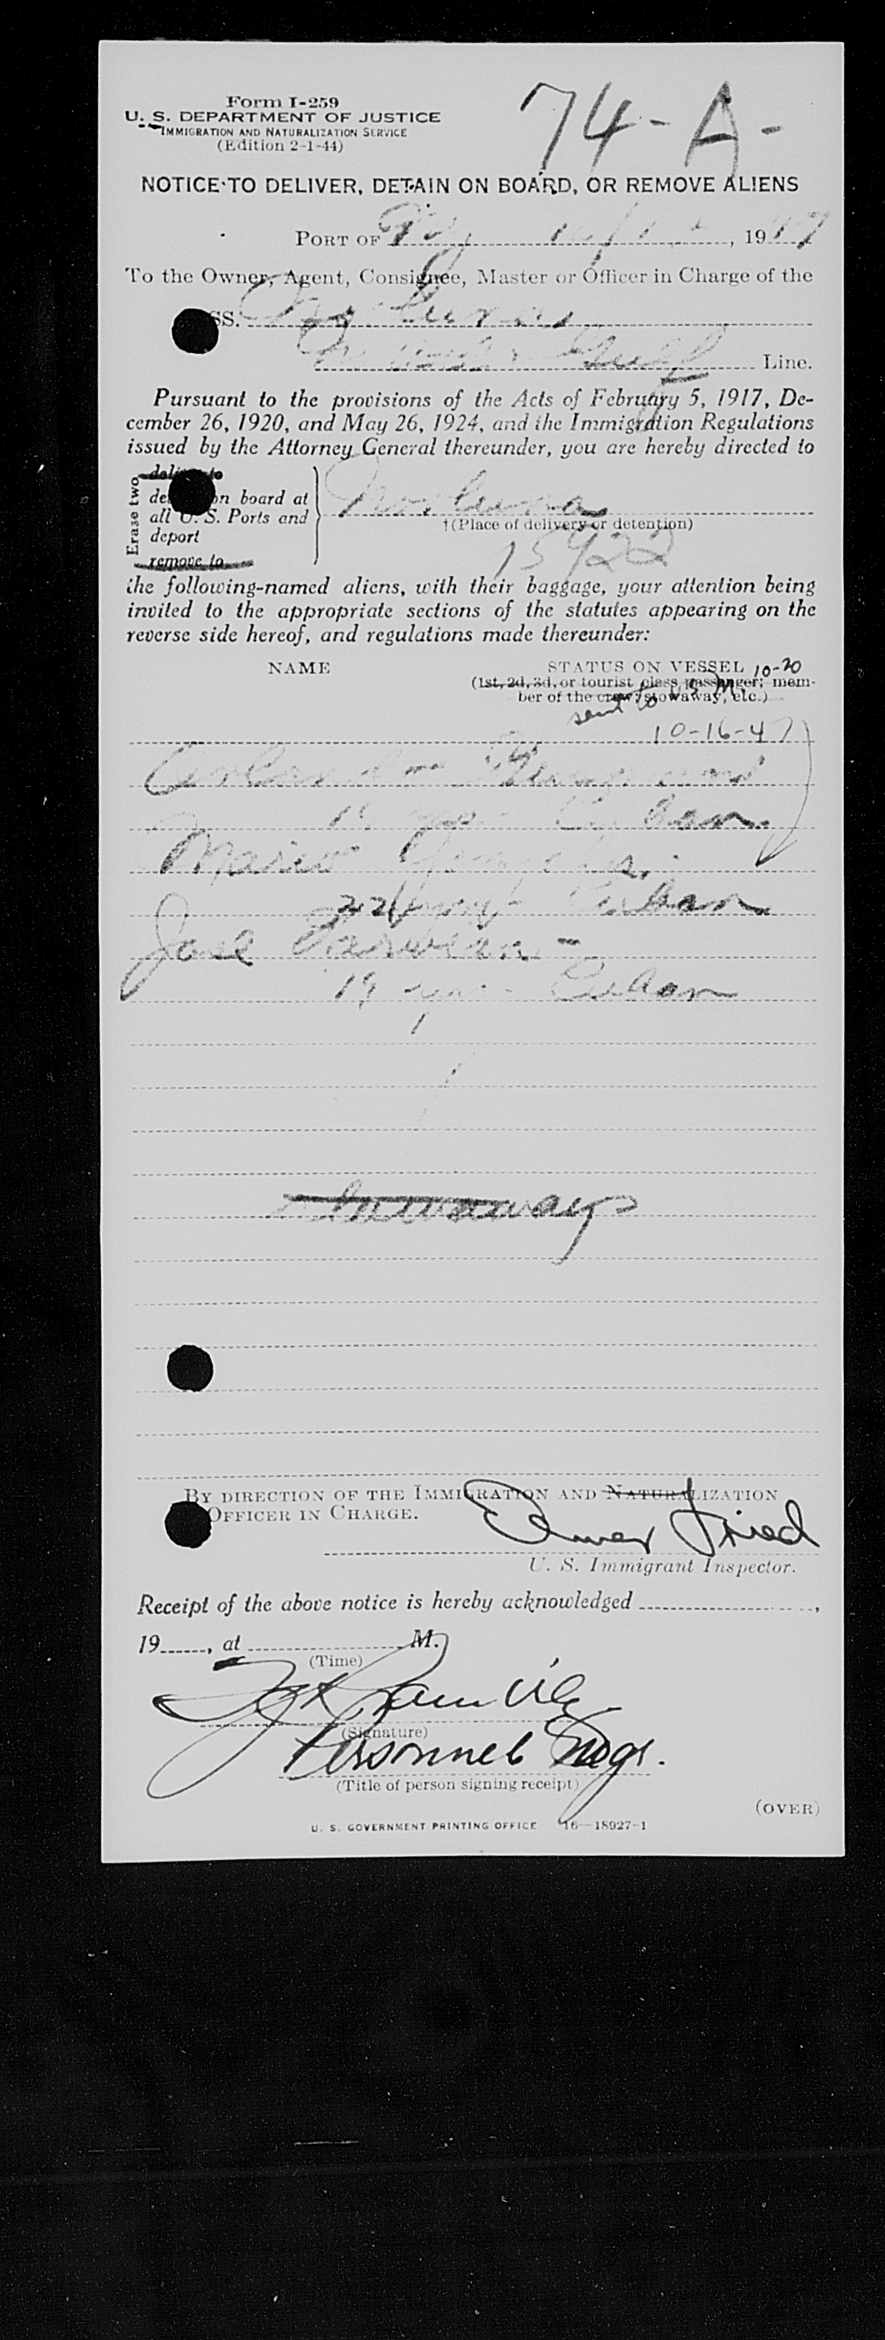 Form I-259
U. S. DEPARTMENT OF JUSTICE
IMMIGRATION AND NATURALIZATION SERVICE
(Edition 2-1-44)
74-A-
NOTICE TO DELIVER, DETAIN ON BOARD, OR REMOVE ALIENS
PORT OF NY 19 47
To the Owner, Agent, Consignee, Master or Officer in Charge of the
SS.
Gulf Line.
Pursuant to the provisions of the Acts of February 5, 1917, De-
cember 26, 1920, and May 26, 1924, and the Immigration Regulations
issued by the Attorney General thereunder, you are hereby directed to
Erase two
deliver to
on board at
all U. S. Ports and
deport
remove to
†(Place of delivery or detention)
15922
the following-named aliens, with their baggage, your attention being
invited to the appropriate sections of the statutes appearing on the
reverse side hereof, and regulations made thereunder:
NAME STATUS ON VESSEL 10-20
(1st, 2d, 3d, or tourist class passenger; mem-
ber of the crew, stowaway, etc.)
sent to
10-16-47
Cuban
Mario
22 Cuban
Jose
19 yrs - Cuban
Stowaways
BY DIRECTION OF THE IMMIGRATION AND NATURALIZATION
OFFICER IN CHARGE.
Elmer Fried
U. S. Immigrant Inspector.
Receipt of the above notice is hereby acknowledged ,
19 , at M.
(Time)
(Signature)
Personnel Mgr.
(Title of person signing receipt)
(OVER)
U. S. GOVERNMENT PRINTING OFFICE 16—18927-1